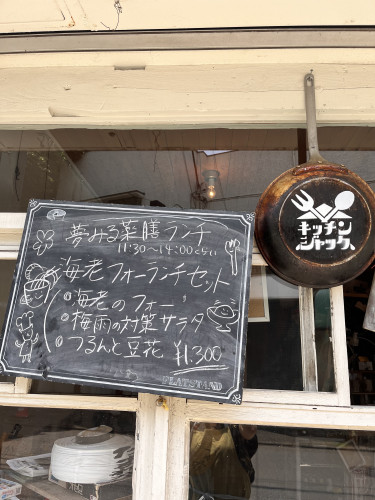 夢みる薬膳ランチ
11:30〜14:00くらい
海老フォーランチセット
・海老のフォー
・梅雨の対策サラダ
・つるんと豆花
¥1300
キッチン
シャック